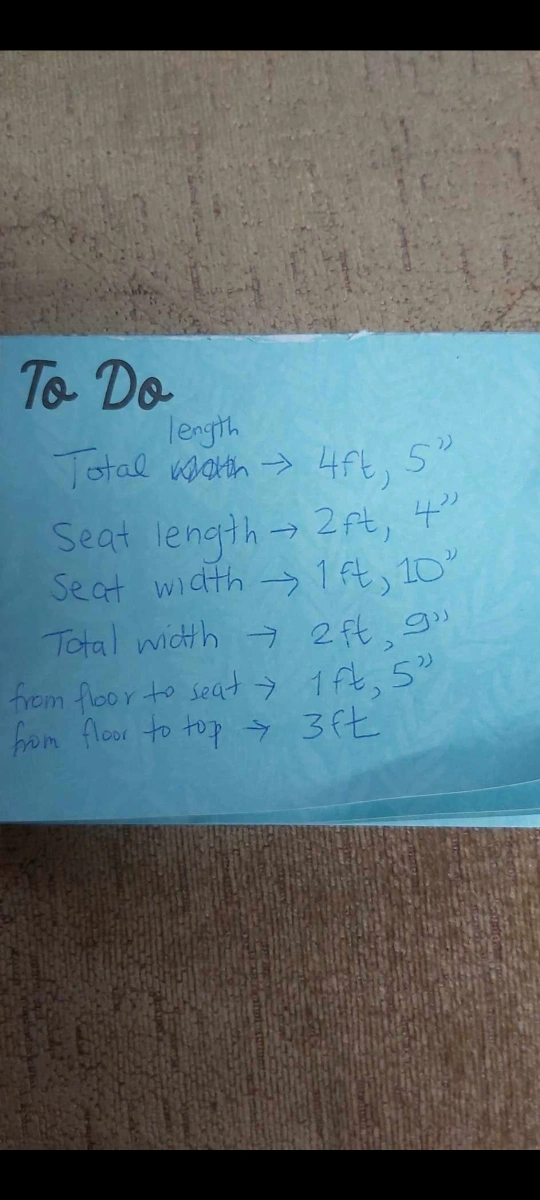 To Do
length
Total width → 4ft, 5"
Seat length → 2ft, 4"
Seat width → 1ft, 10"
Total width → 2ft, 9"
from floor to seat → 1ft, 5"
from floor to top → 3ft